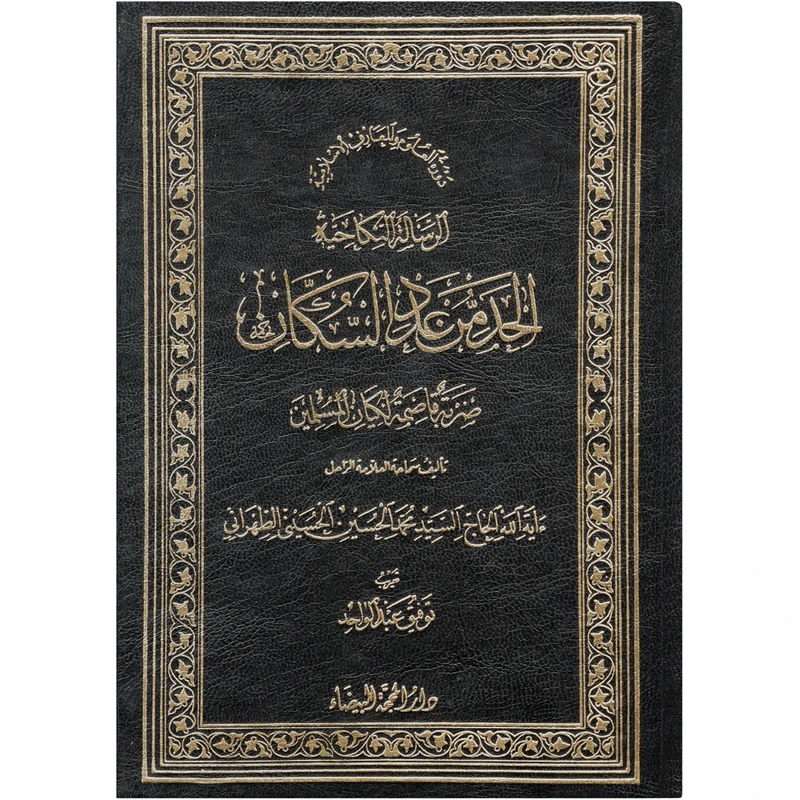 دورة العلوم والمعارف الإسلامية
الرسالة النكاحية
الحد من عدد السكان
ضربة قاصمة لكيان المسلمين
تأليف سماحة العلامة الراحل
ءاية الله الحاج السيد محمد الحسين الحسيني الطهراني
تعريب
توفيق عبد الواحد
دار المحجة البيضاء